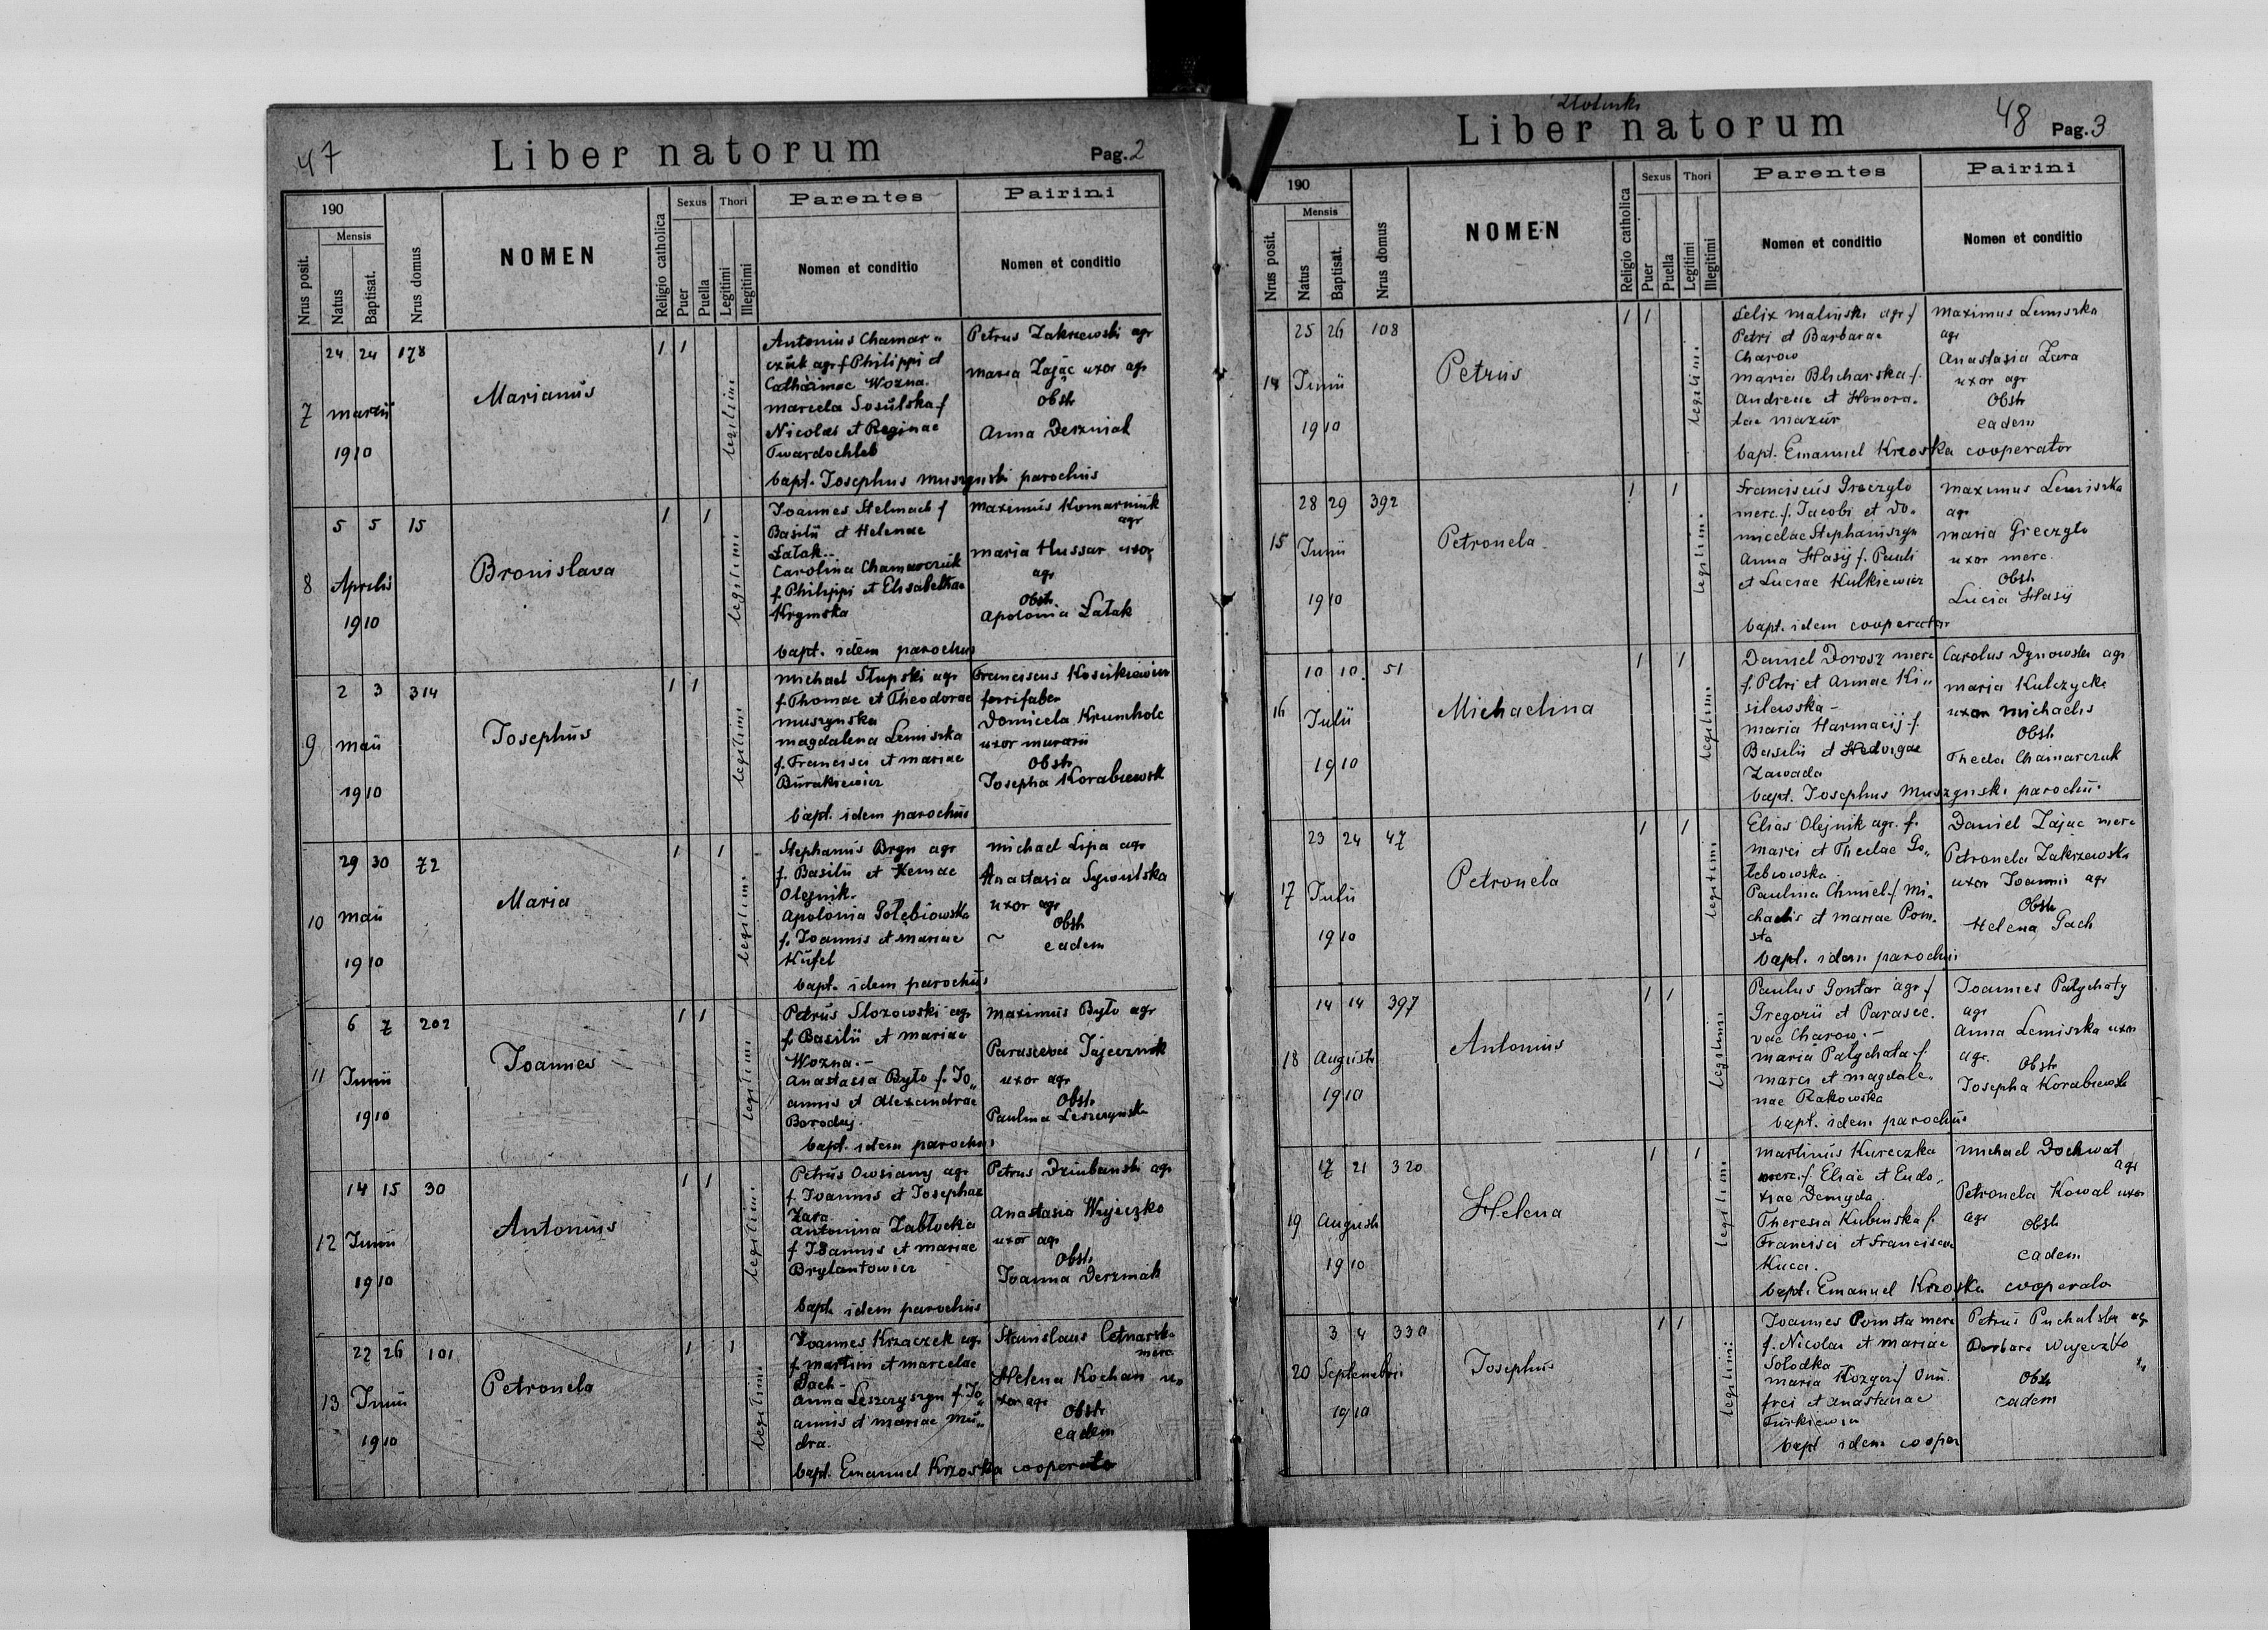 47
Liber natorum
Pag. 2
190
Mensis
Nrus posit.
Natus
Baptisat.
Nrus domus
NOMEN
Religio catholica
Sexus
Puer
Puella
Thori
Legitimi
Illegitimi
Parentes
Nomen et conditio
Pairini
Nomen et conditio
7
24 24 178
martii
1910
Marianus
1 1
legitimi
Antonius Chamar„
czuk agr f Philippi et
Catharinae Wozna.
Marcela Sosulska f
Nicolai et Reginae
Twardochleb
bapt. Josephus Muszynski parochus
Petrus Zakrzewski agr
Maria Zając uxor agr
Obst
Anna Derzniak
8
5 5 15
Aprilis
1910
Bronislava
1 1
legitimi
Joannes Stelmach f
Basilii et Helenae
Łatak..
Carolina Chamarczuk
f Philippi et Elisabethae
Krymska
bapt. idem parochus
Maximus Komarnink
agr
Maria Hussar uxor
agr
Obst
Apolonia Łatak
9
2 3 314
Maii
1910
Josephus
1 1
legitimi
Michael Słupski agr
f. Thomae et Theodorae
Muszynska
Magdalena Lemiszka
f. Francisci et Mariae
Burakiewicz
bapt. idem parochus
Franciscus Koscikiewicz
ferrifaber
Domicela Krumholc
uxor murarii
Obst
Josepha Korabiewsk
10
29 30 72
Maii
1910
Maria
1 1
legitimi
Stephanus Bryn agr
f. Basilii et Xeniae
Olejnik.
Apolonia Gołębiowska
f. Joannis et Mariae
Kufel
bapt. idem parochus
Michael Lipa agr
Anastasia
uxor agr
Obst
~ eadem
11
6 7 202
Junii
1910
Joannes
1 1
legitimi
Petrus Slozowski agr
f. Basilii et Mariae
Wozna.-
Anastasia Byto f. Jo„
annis et Alexandrae
Borodaj.
bapt. idem parochus
Maximus Byto agr
Parasceva Jajecznik
uxor agr
Obst
Paulina Leszczynska
12
14 15 30
Junii
1910
Antonius
1 1
legitimi
Petrus Owsiany agr
f. Joannis et Josephae
Zara
Antonina Zabłocka
f Joannis et Mariae
Brylantowicz
bapt. idem parochus
Petrus Dziubanski agr
Anastasia Wujeczko
uxor agr
Obst.
Joanna Derzniak
13
22 26 101
Junii
1910
Petronela
1 1
legitimi
Joannes Krzaczek agr
f. Martini et Marcelae
Gach-
Anna Leszczyszyn f. Jo„
annis et Mariae Mu„
dra.
bapt. Emanuel Krzoska cooperator
Stanislaus Cetnarski
merc.
Helena Kochan u„
xor agr
Obst
eadem
48
Liber natorum
Pag. 3
190
Mensis
Nrus posit.
Natus
Baptisat.
Nrus domus
NOMEN
Religio catholica
Sexus
Puer
Puella
Thori
Legitimi
Illegitimi
Parentes
Nomen et conditio
Pairini
Nomen et conditio
14
25 26 108
Junii
1910
Petrus
1 1
legitimi
Felix Malinski agr f
Petri et Barbarae
Charow
Maria Blicharska f.
Andreae et Honora„
tae Mazur
bapt. Emanuel Krzoska cooperator
Maximus Lemiszka
agr
Anastasia Zara
uxor agr
Obst
eadem
15
28 29 392
Junii
1910
Petronela
1 1
legitimi
Franciscus Greczylo
merc. f. Jacobi et Do„
micelae Stephaniszyn
Anna Hasij f. Pauli
et Luciae Kulkiewicz
bapt. idem cooperator
Maximus Lemiszka
agr
Maria Greczylo
uxor merc.
Obst.
Lucia Hasij
16
10 10. 51
Julii
1910
Michaelina
1 1
legitimi
Daniel Dorosz merc
f. Petri et Annae Ki„
silewska-
Maria Harmacij f.
Basilii et Hedvigae
Zawada
bapt. Josephus Muszynski parochus.
Carolus Dynowski agr
Maria Kulczycka
uxor Michaelis
Obst
Theda Chamarczuk
17
23 24 47
Julii
1910
Petronela
1 1
legitimi
Elias Olejnik agr. f.
Marci et Theclae Go„
łebiowska
Paulina Chmiel f Mi„
chaelis et Mariae Pom„
sta
bapt. idem parochus
Daniel Zając merc
Petronela Zakrzewska
uxor Joannis agr
Obst
Helena Gach
18
14 14 397
Augusti
1910
Antonius
1 1
legitimi
Paulus Gontar agr f
Gregorii et Parasce.
vae Charow.-
Maria Patychata f.
Marci et Magdale„
nae Rakowska
bapt. idem parochus
Joannes Patychaty
agr
Anna Lemiszka uxor
agr. Obst
Josepha Korabiewsk
19
17 21 320
Augusti
1910
Helena
1 1
legitimi
Martinus Kureczka
merc. f. Eliae et Eudo„
xiae Demyda
Theresia Kubinska f.
Francisci et Franciscae
Kuca.
bapt. Emanuel Krzoska cooperator
Michael Dochwat
agr
Petronela Kowal uxor
agr Obst
eadem
20
3 4 330
Septembris
1910
Josephus
1 1
legitimi
Joannes Pomsta merc
f. Nicolai et Mariae
Solodka
Maria Kozyer f Onu„
frei et Anastasiae
Turkiewicz
bapt idem cooper
Petrus Puchalski agr
Barbara Wujeczko
Obst
eadem